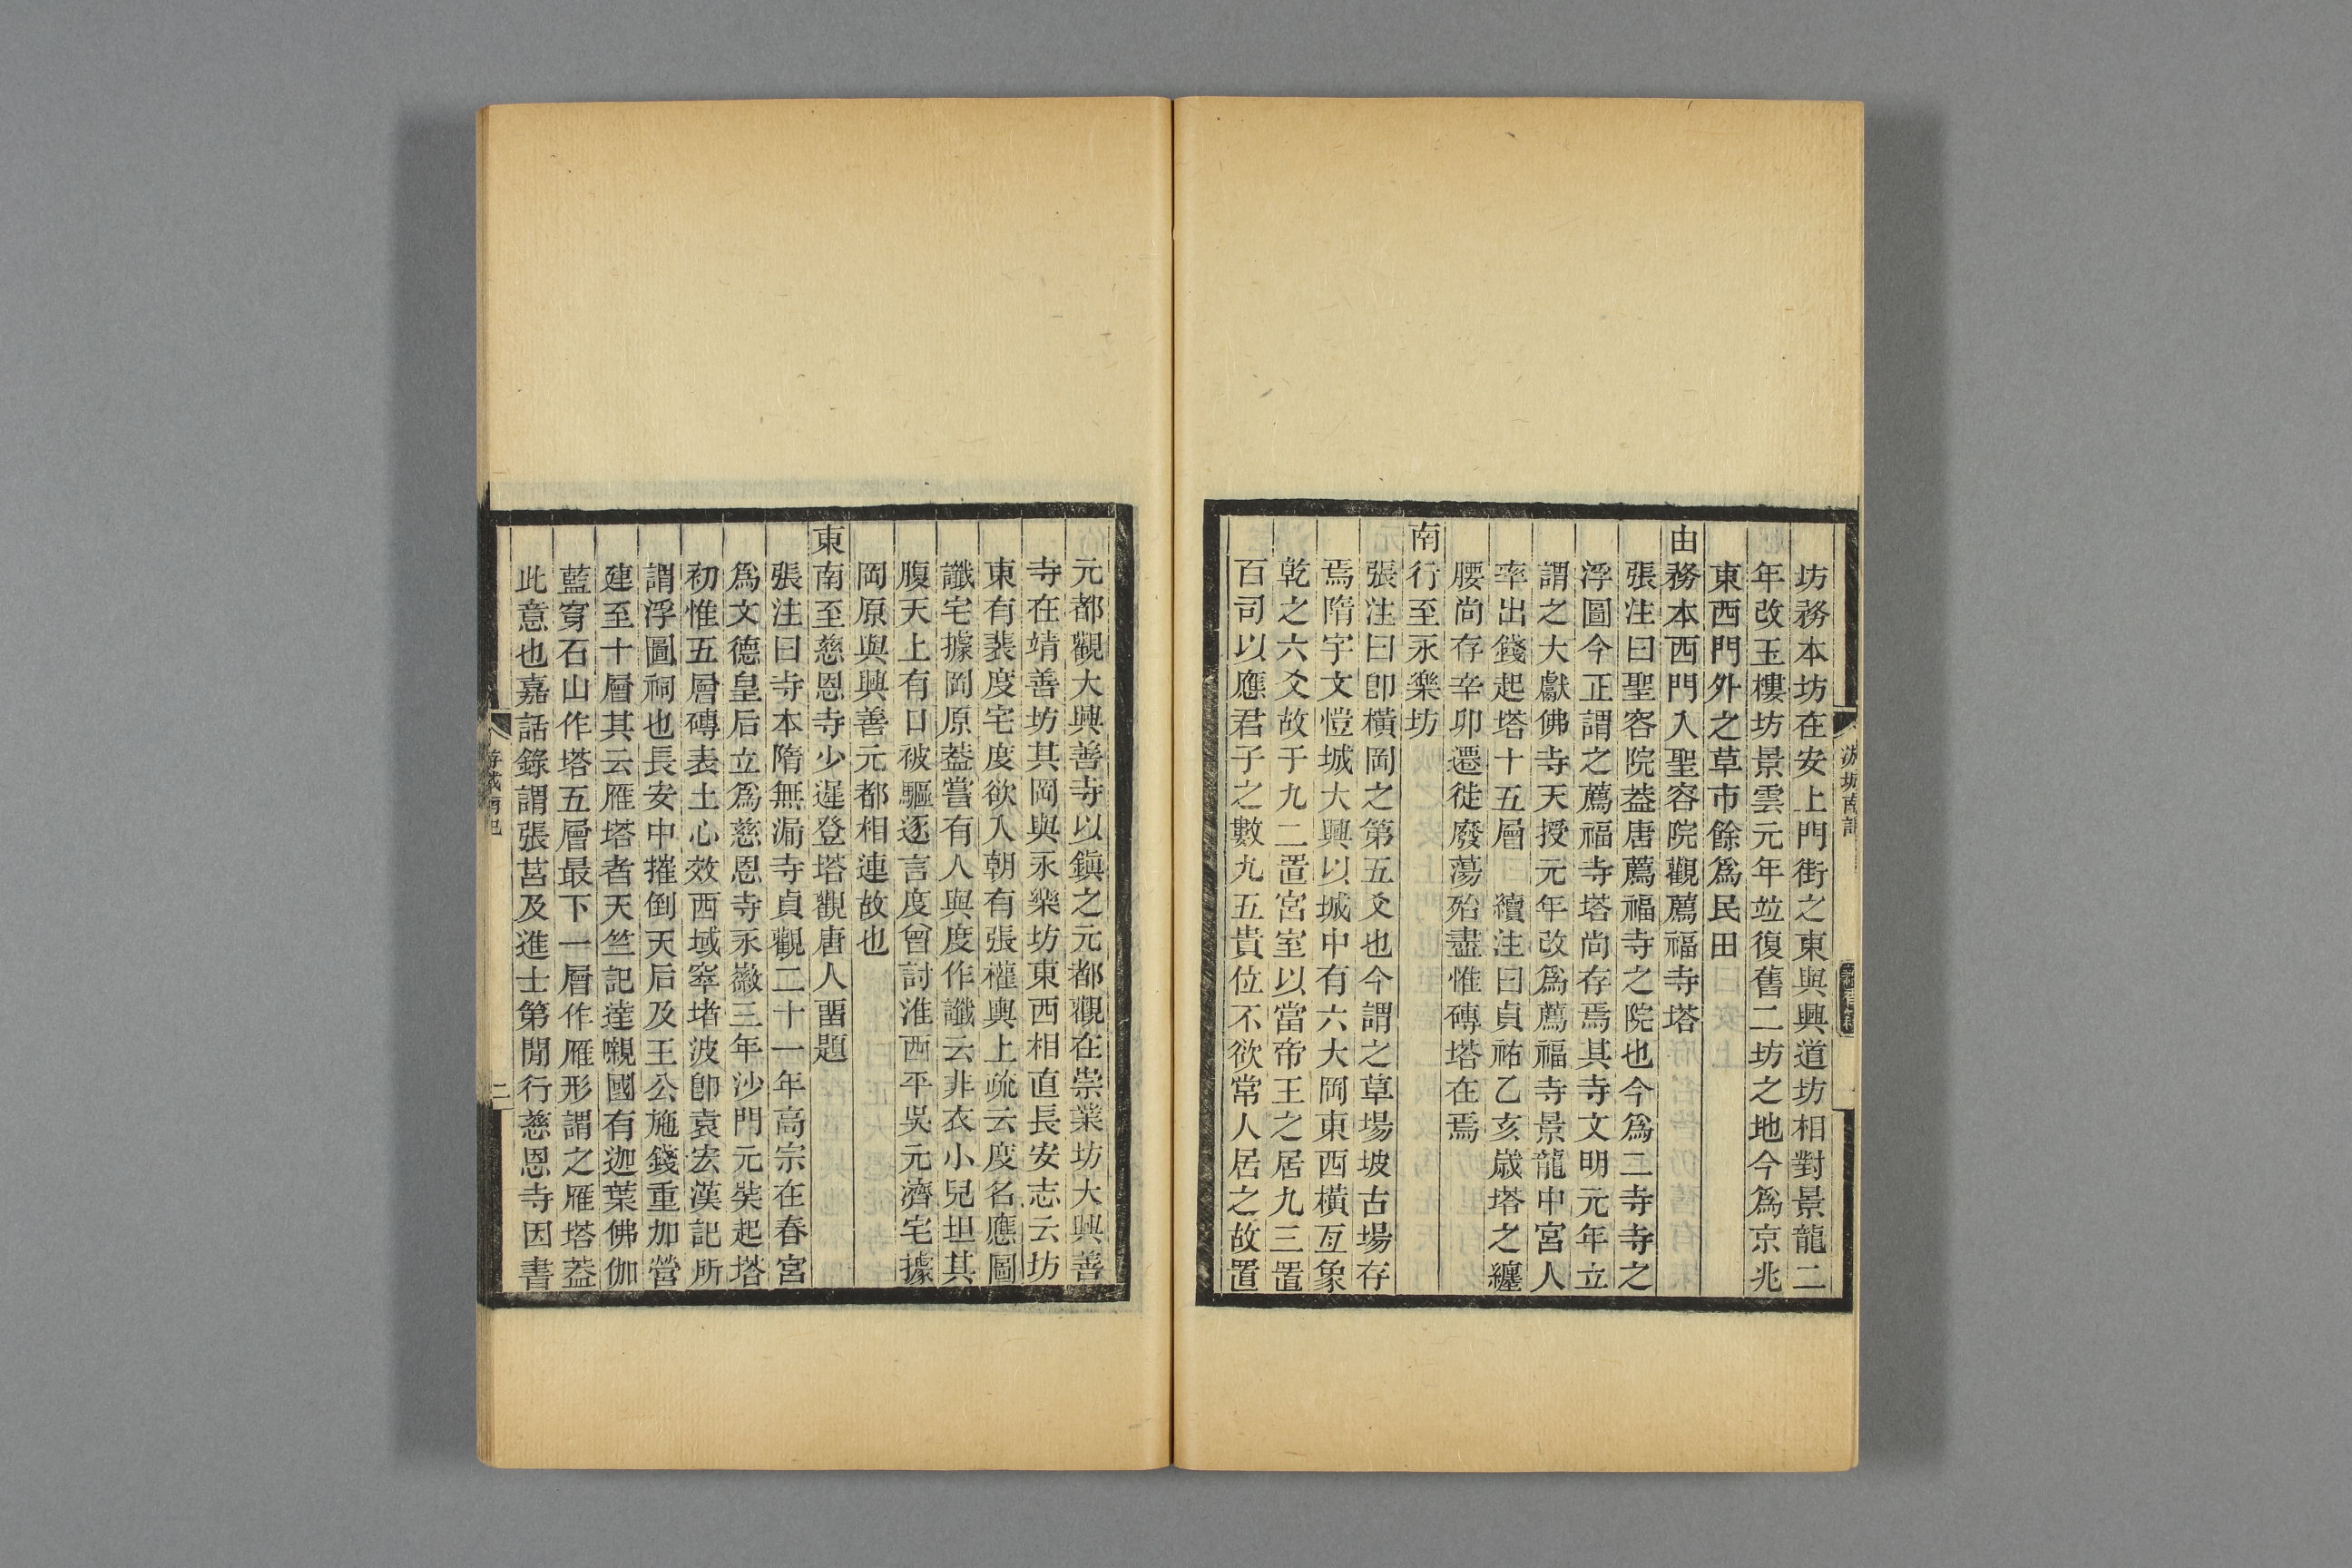 坊務本坊在安上門街之東與興道坊相對景龍二
年改玉樓坊景雲元年竝復舊二坊之地今爲京兆
東西門外之草市餘爲民田
由務本西門入聖容院觀薦福寺塔
張注曰聖容院葢唐薦福寺之院也今爲二寺寺之
浮圖今正謂之薦福寺塔尚存焉其寺文明元年立
謂之大獻佛寺天授元年改爲薦福寺景龍中宮人
率出錢起塔十五層 續注曰貞祐乙亥歲塔之纏
腰尚存辛卯遷徙廢蕩殆盡惟磚塔在焉
南行至永樂坊
張注曰卽橫岡之第五爻也今謂之草場坡古場存
焉隋宇文愷城大興以城中有六大岡東西橫亙象
乾之六爻故于九二置宮室以當帝王之居九三置
百司以應君子之數九五貴位不欲常人居之故置
元都觀大興善寺以鎭之元都觀在崇業坊大興善
寺在靖善坊其岡與永樂坊東西相直長安志云坊
東有裴度宅度欲入朝有張權輿上疏云度名應圖
讖宅據岡原葢嘗有人與度作讖云非衣小兒坦其
腹天上有口被驅逐言度曾討淮西平吳元濟宅據
岡原與興善元都相連故也
東南至慈恩寺少遲登塔觀唐人畱題
張注曰寺本隋無漏寺貞觀二十一年高宗在春宮
爲文德皇后立爲慈恩寺永徽三年沙門元奘起塔
初惟五層磚表土心效西域窣堵波卽袁宏漢記所
謂浮圖祠也長安中摧倒天后及王公施錢重加營
建至十層其云雁塔者天竺記達嚫國有迦葉佛伽
藍穿石山作塔五層最下一層作雁形謂之雁塔葢
此意也嘉話錄謂張莒及進士第閒行慈恩寺因書
二